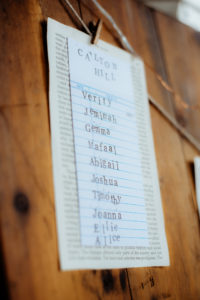 CALTON
HILL
Verity
Jemimah
Gemma
Mafaal
Abigail
Joshua
Timothy
Joanna
Ellie
Alice